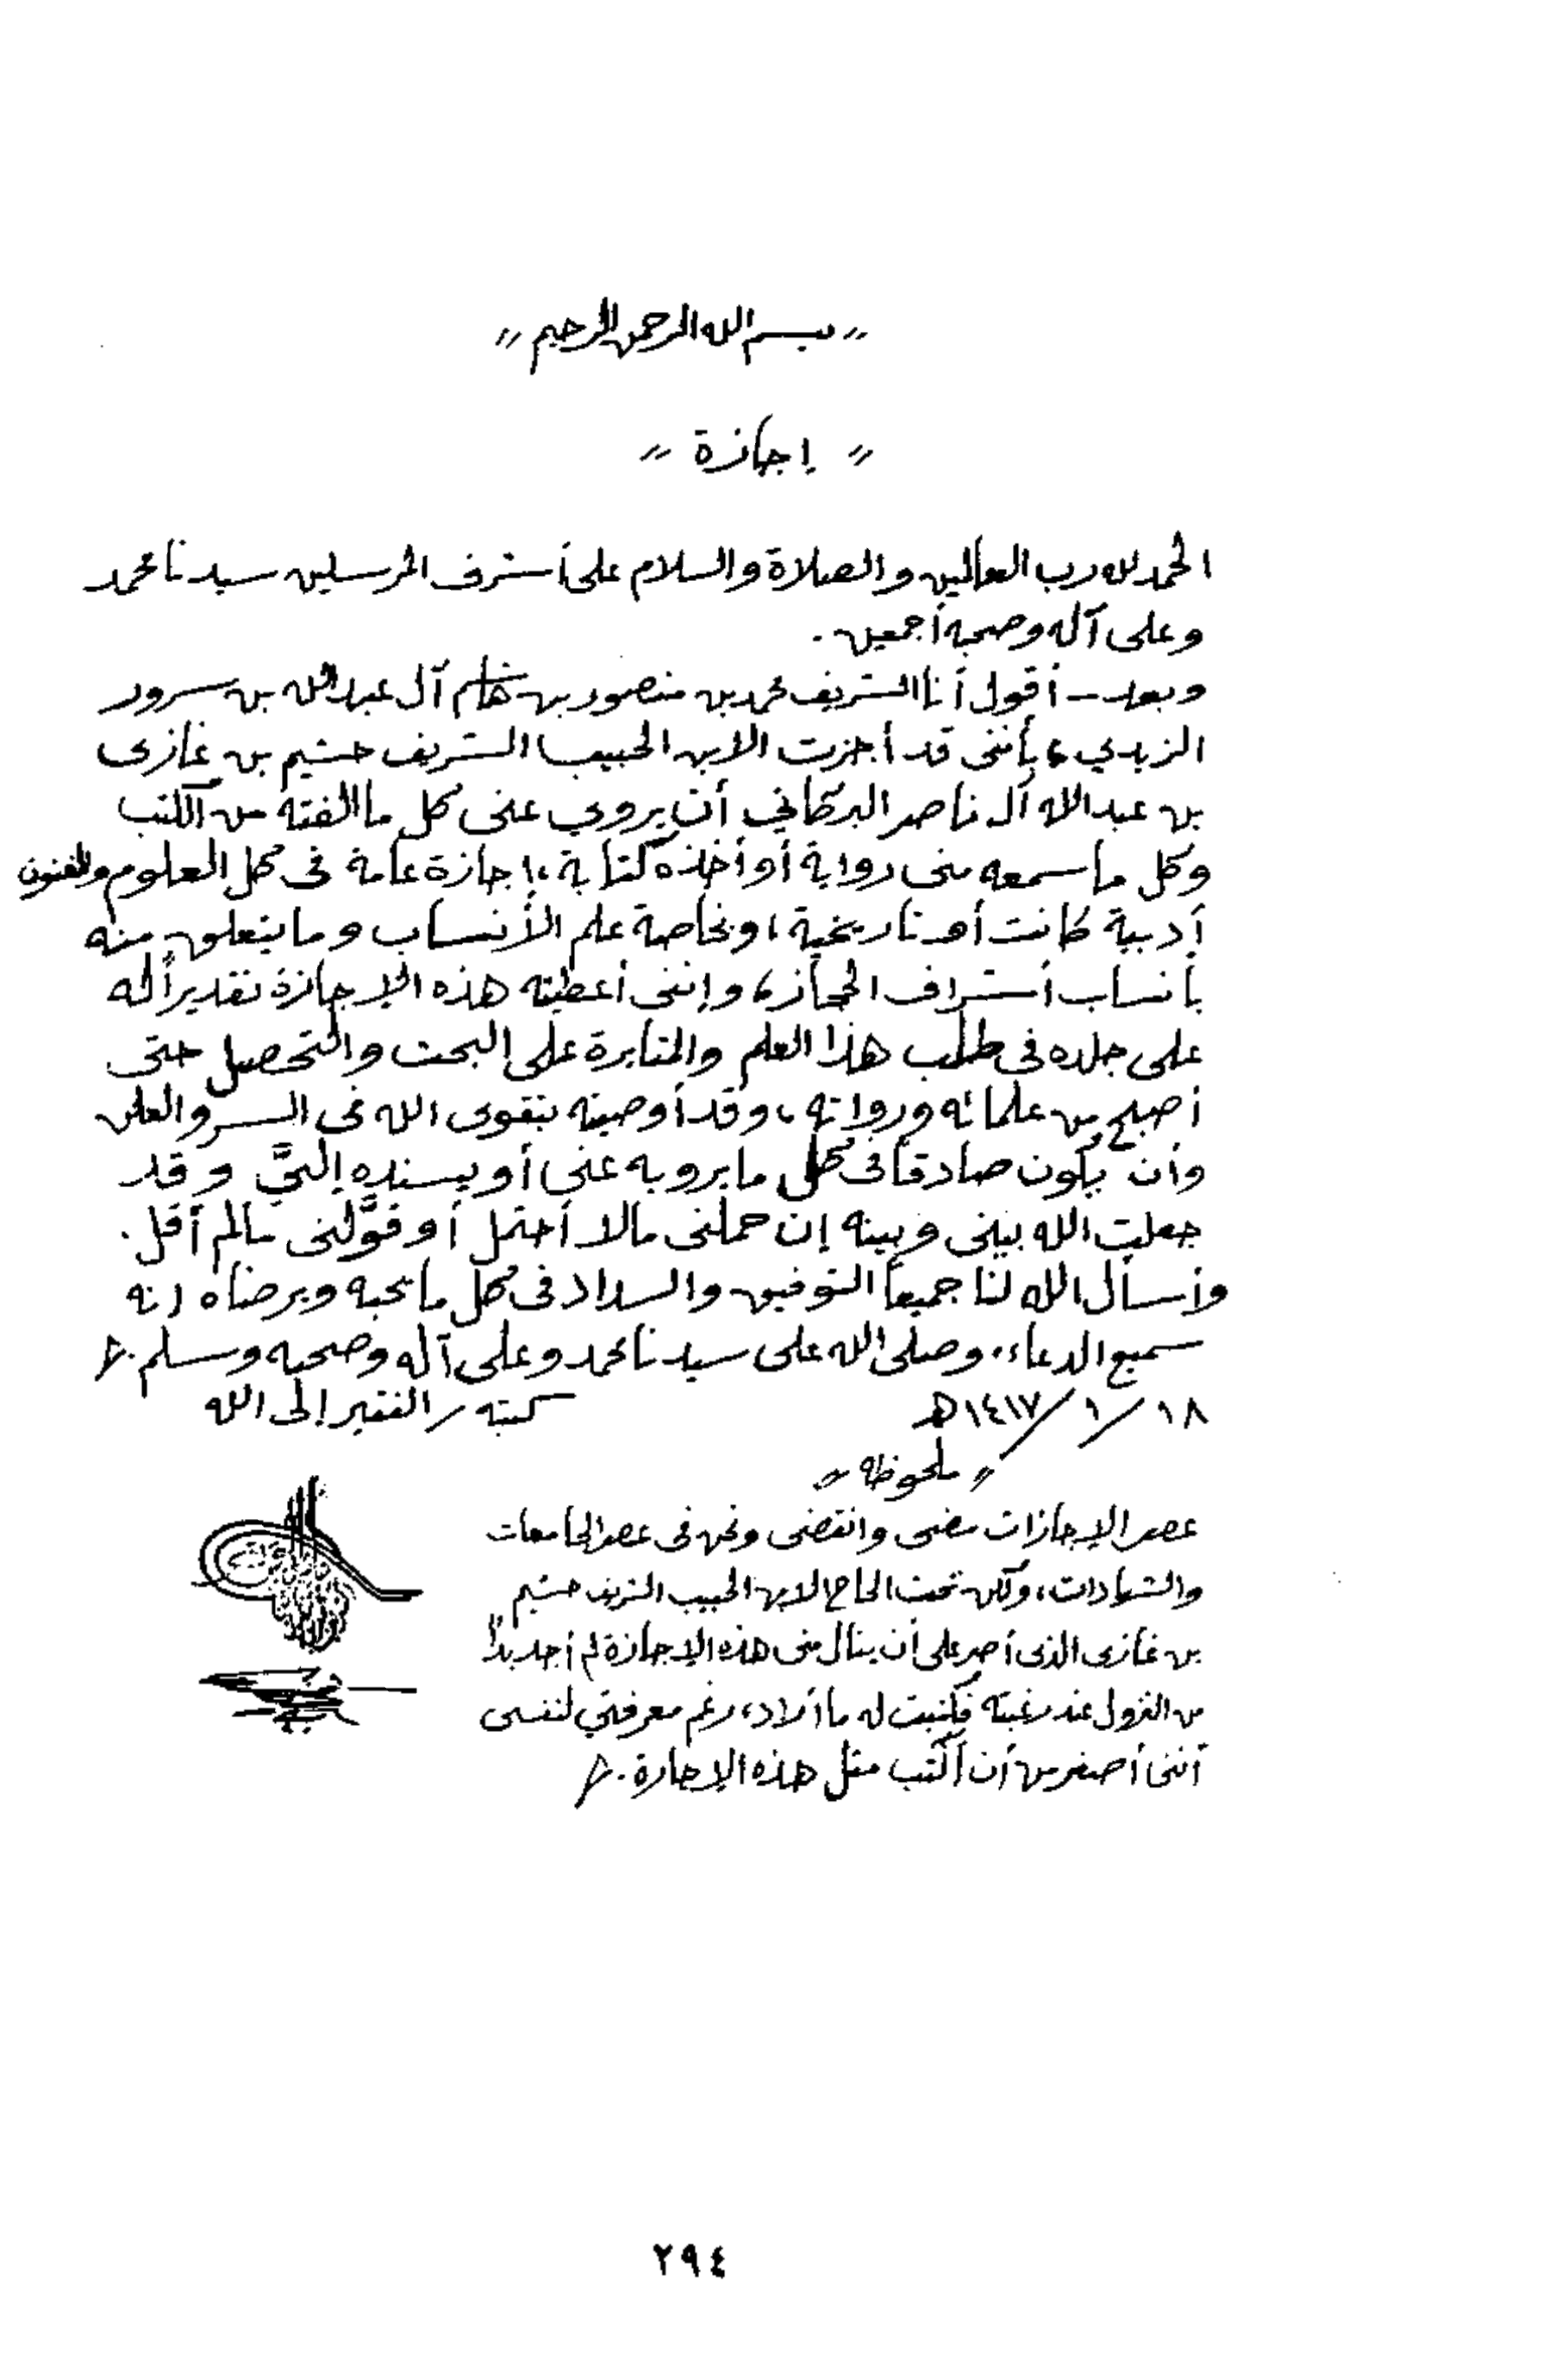 "بسم الله الرحمن الرحيم"
"إجازة"
الحمد لله رب العالمين والصلاة والسلام على أشرف المرسلين سيدنا محمد
وعلى آله وصحبه أجمعين.
وبعد - أقول أنا الشريف محمد بن منصور بن هاشم آل عبدالله بن سرور
الزيدي، بأنني قد أجزت الابن الحبيب الشريف حشيم بن غازى
بن عبدالله آل ناصر البركاتي أن يروي عنى كل ما الفته من الكتب
وكل ما سمعه منى رواية أو أخذه كتابة، إجازة عامة فى كل العلوم والفنون
أدبية كانت أو تاريخية، وبخاصة علم الأنساب وما يتعلق منه
بأنساب أشراف الحجاز، وإننى أعطيته هذه الإجازة تقديراً له
على جلده فى طلب هذا العلم والمثابرة على البحث والتحصيل حتى
أصبح من علمائه ورواته، وقد أوصيته بتقوى الله فى السر والعلن
وأن يكون صادقاً فى كل ما يرويه عنى أو يسنده إليَّ وقد
جعلت الله بينى وبينه إن حملنى مالا أحتمل أو قوَّلنى مالم أقل.
وأسأل الله لنا جميعاً التوفيق والسداد فى كل ما يحبه ويرضاه إنه
سميع الدعاء، وصلى الله على سيدنا محمد وعلى آله وصحبه وسلم./
١٨/١/١٤١٧هـ كتبه / الفقير إلى الله
"ملحوظه"
عصر الإجازات مضى وانقضى ونحن فى عصر الجامعات
والشهادات، ولكن تحت الحاح الابن الحبيب الشريف حشيم
بن غازى الذى أصر على أن ينال منى هذه الإجازة لم أجد بداً
من النزول عند رغبته فكتبت له ما أراد، رغم معرفتي لنفسى
أننى أصغر من أن أكتب مثل هذه الإجازة./
٢٩٤